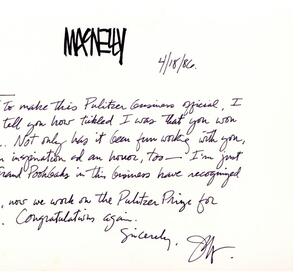 MACNELLY
4/18/86.
to make this Pulitzer business official, I
tell you how tickled I was that you won
. Not only has it been fun working with you,
inspiration and an honor, too — I'm just
Grand PoohBahs in this business have recognized
, now we work on the Pulitzer Prize for
. Congratulations again.
Sincerely,